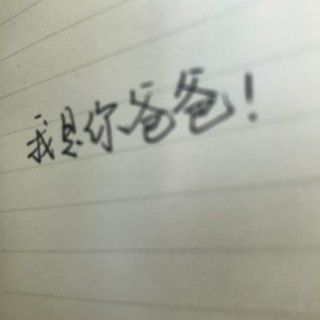 我是你爸爸!